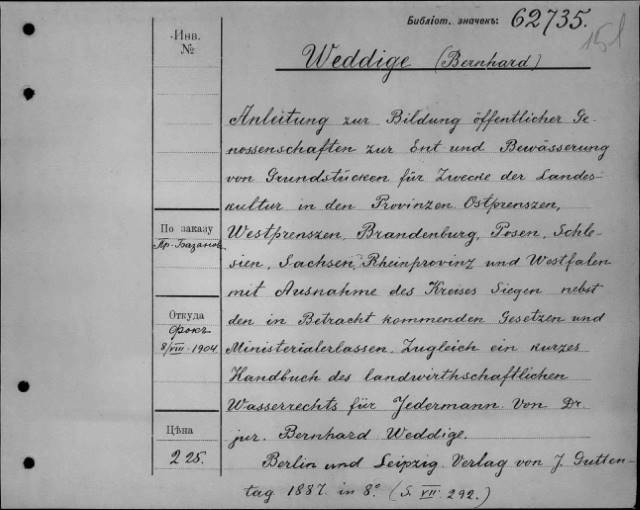 Библіот. значекъ: 62735.
151
Инв.
№
Weddige (Bernhard)
Anleitung zur Bildung öffentlicher Ge-
nossenschaften zur Ent und Bewässerung
von Grundstücken für Zwecke der Landes-
kultur in den Provinzen Ostprenszen,
Westprenszen, Brandenburg, Posen, Schle-
sien, Sachsen, Rheinprovinz und Westfalen
mit Ausnahme des Kreises Siegen nebst
den in Betracht kommenden Gesetzen und
Ministerialerlassen. Zugleich ein kurzes
Handbuch des landwirthschaftlichen
Wasserrechts für Jedermann. Von Dr.
jur. Bernhard Weddige.
Berlin und Leipzig. Verlag von J. Gutten-
tag 1887. in 8º. (S. VII. 292.)
По заказу
Пр. Базанов
Откуда
Фокъ
8/VIII 1904
Цѣна
2 25.